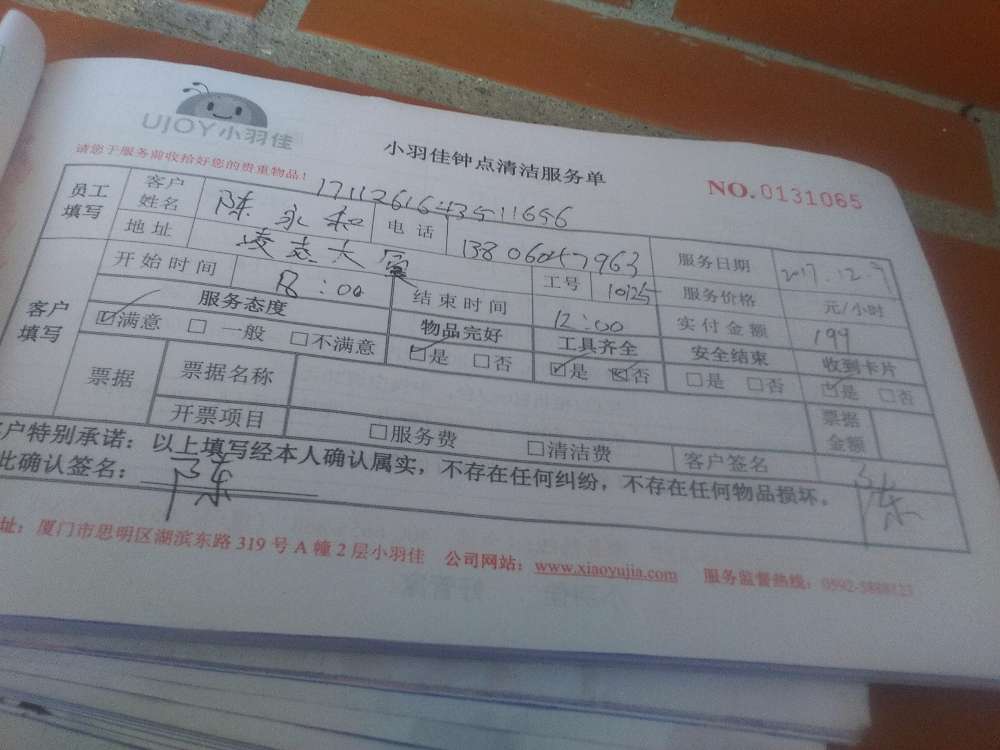 UJOY小羽佳
小羽佳钟点清洁服务单
请您于服务前收拾好您的贵重物品！
NO.0131065
171126164351 1656
员工填写 客户姓名 陈永和 电话 13806047963 服务日期 2017.12.9
地址 凌志大厦 工号 10125 服务价格 元/小时
客户填写 开始时间 8:00 结束时间 12:00 实付金额 199
服务态度 物品完好 工具齐全 安全结束 收到卡片
☑满意 □一般 □不满意 ☑是 □否 ☑是 ☑否 □是 □否 ☑是 □否
票据 票据名称 票据金额
开票项目 □服务费 □清洁费 客户签名 陈
客户特别承诺：以上填写经本人确认属实，不存在任何纠纷，不存在任何物品损坏。
此确认签名： 陈
址：厦门市思明区湖滨东路319号A幢2层小羽佳 公司网站：www.xiaoyujia.com 服务监督热线：0592-5888123